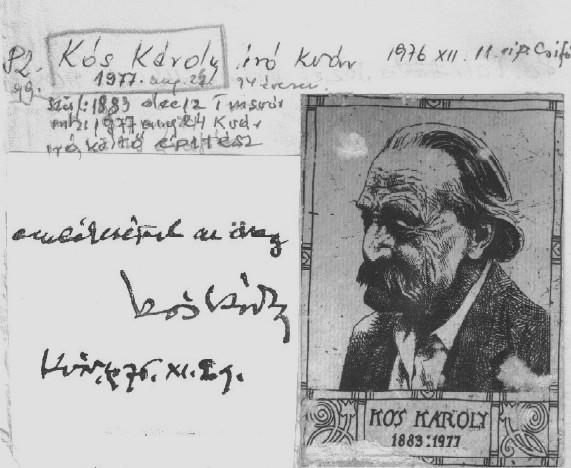 82. Kós Károly író Kvár 1976 XII. 11.
99. 1977. aug. 24. 94 éves
szül: 1883 dec 12 Tmsvár
mh: 1977 aug 24 Kvár
író költő építész
emlékezésül az öreg
Kós Károly
Kvár, 976. XI. 29.
KÓS KÁROLY
1883:1977